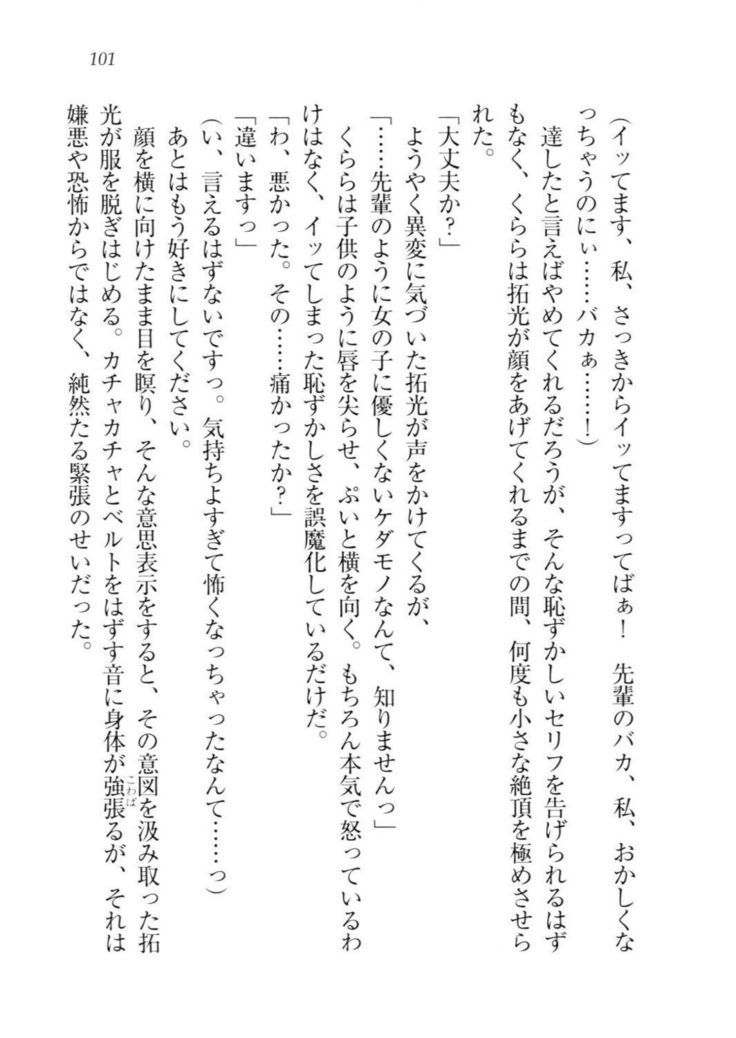 101
(イッてます、私、さっきからイッてますってばぁ！　先輩のバカ、私、おかしくな
っちゃうのにぃ……バカぁ……！)
　達したと言えばやめてくれるだろうが、そんな恥ずかしいセリフを告げられるはず
もなく、くららは拓光が顔をあげてくれるまでの間、何度も小さな絶頂を極めさせら
れた。
「大丈夫か？」
　ようやく異変に気づいた拓光が声をかけてくるが、
「……先輩のように女の子に優しくないケダモノなんて、知りませんっ」
　くららは子供のように唇を尖らせ、ぷいと横を向く。もちろん本気で怒っているわ
けはなく、イッてしまった恥ずかしさを誤魔化しているだけだ。
「わ、悪かった。その……痛かったか？」
「違いますっ」
(い、言えるはずないですっ。気持ちよすぎて怖くなっちゃったなんて……っ)
　あとはもう好きにしてください。
　顔を横に向けたまま目を瞑り、そんな意思表示をすると、その意図を汲み取った拓
光が服を脱ぎはじめる。カチャカチャとベルトをはずす音に身体が強張るが、それは
こわば
嫌悪や恐怖からではなく、純然たる緊張のせいだった。